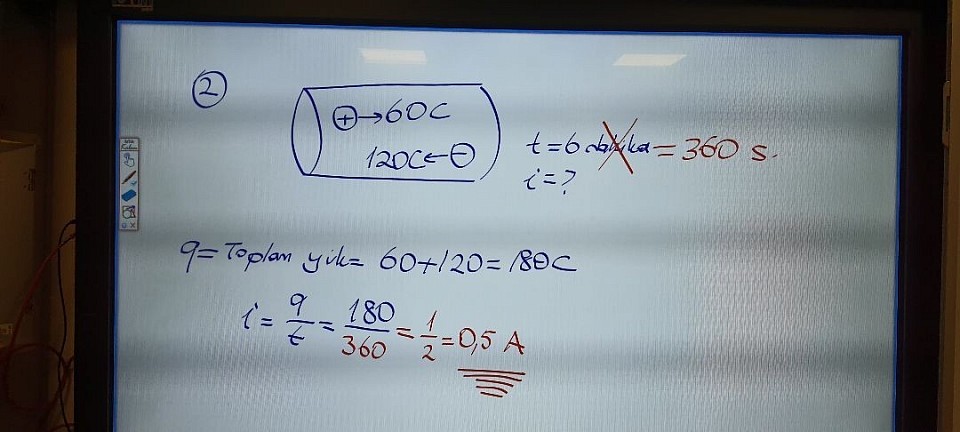 2
⊕→60C
120C←⊖
t=6 dakika = 360 s.
i=?
q= Toplam yük= 60+120=180C
i= q/t = 180/360 = 1/2 = 0,5 A